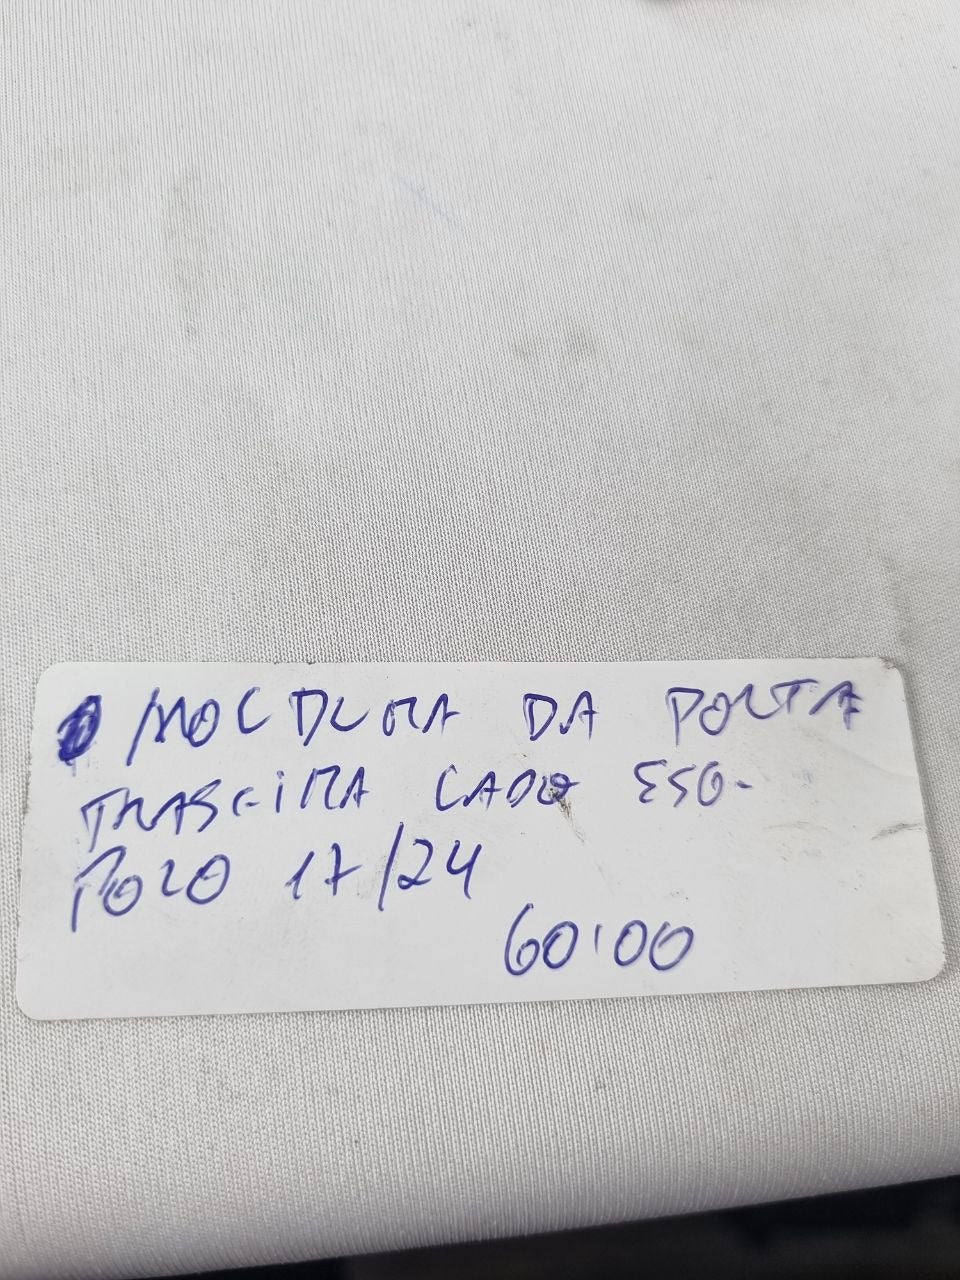 MOLDURA DA PORTA
TRASEIRA LADO ESQ.
POLO 17/24
60,00